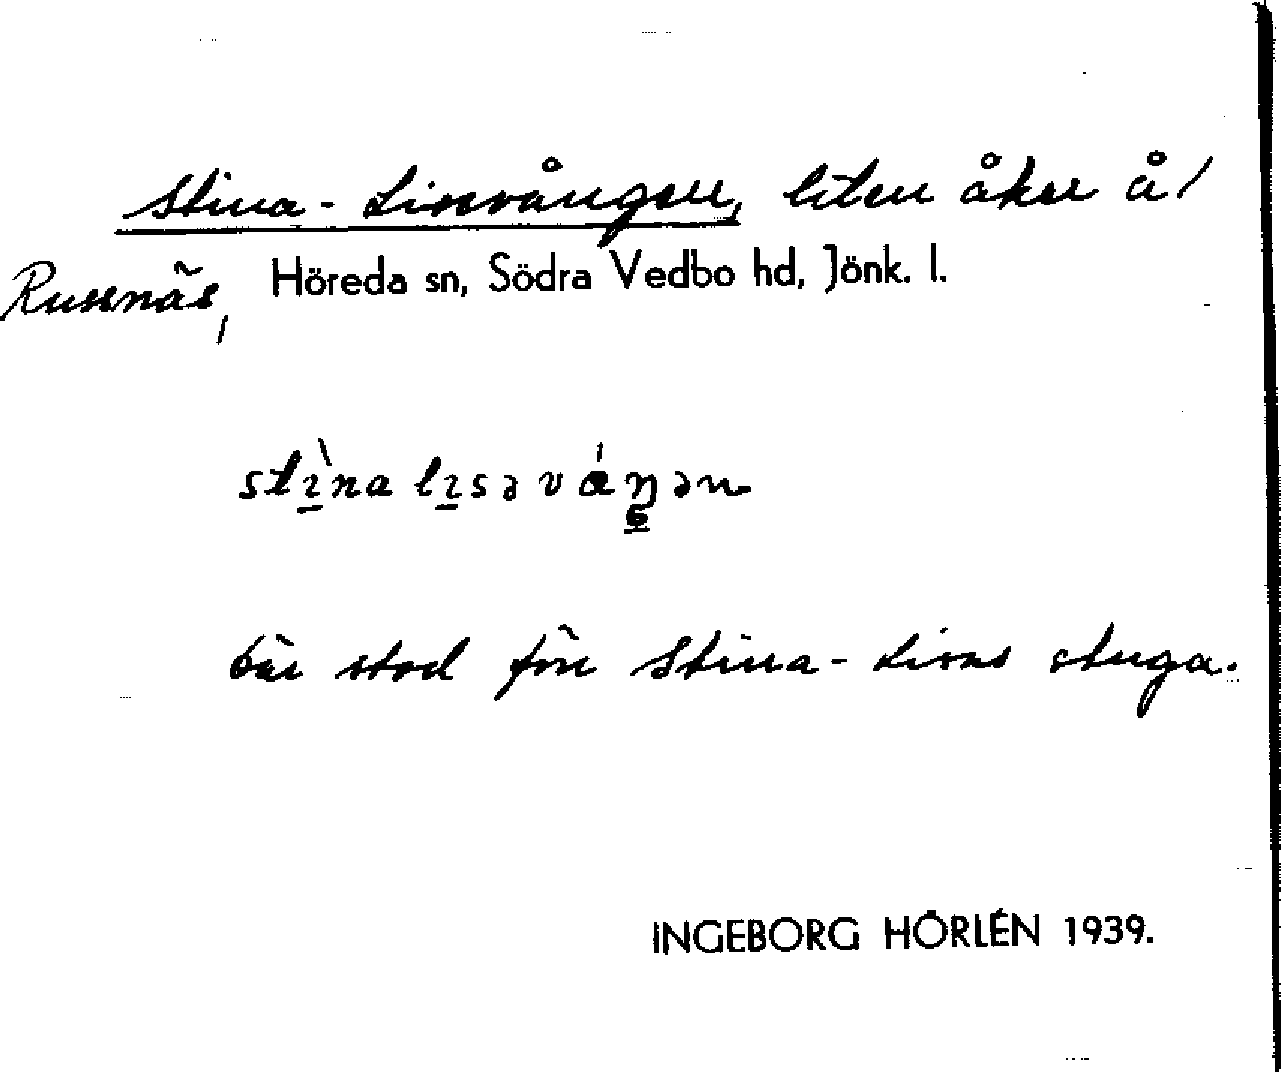 Stina-Lisavången, liten åker å/
Russnäs, Höreda sn, Södra Vedbo hd, Jönk. l.
stìna lisəváŋən
Där stod förr Stina-Lisas stuga.
INGEBORG HÖRLÉN 1939.